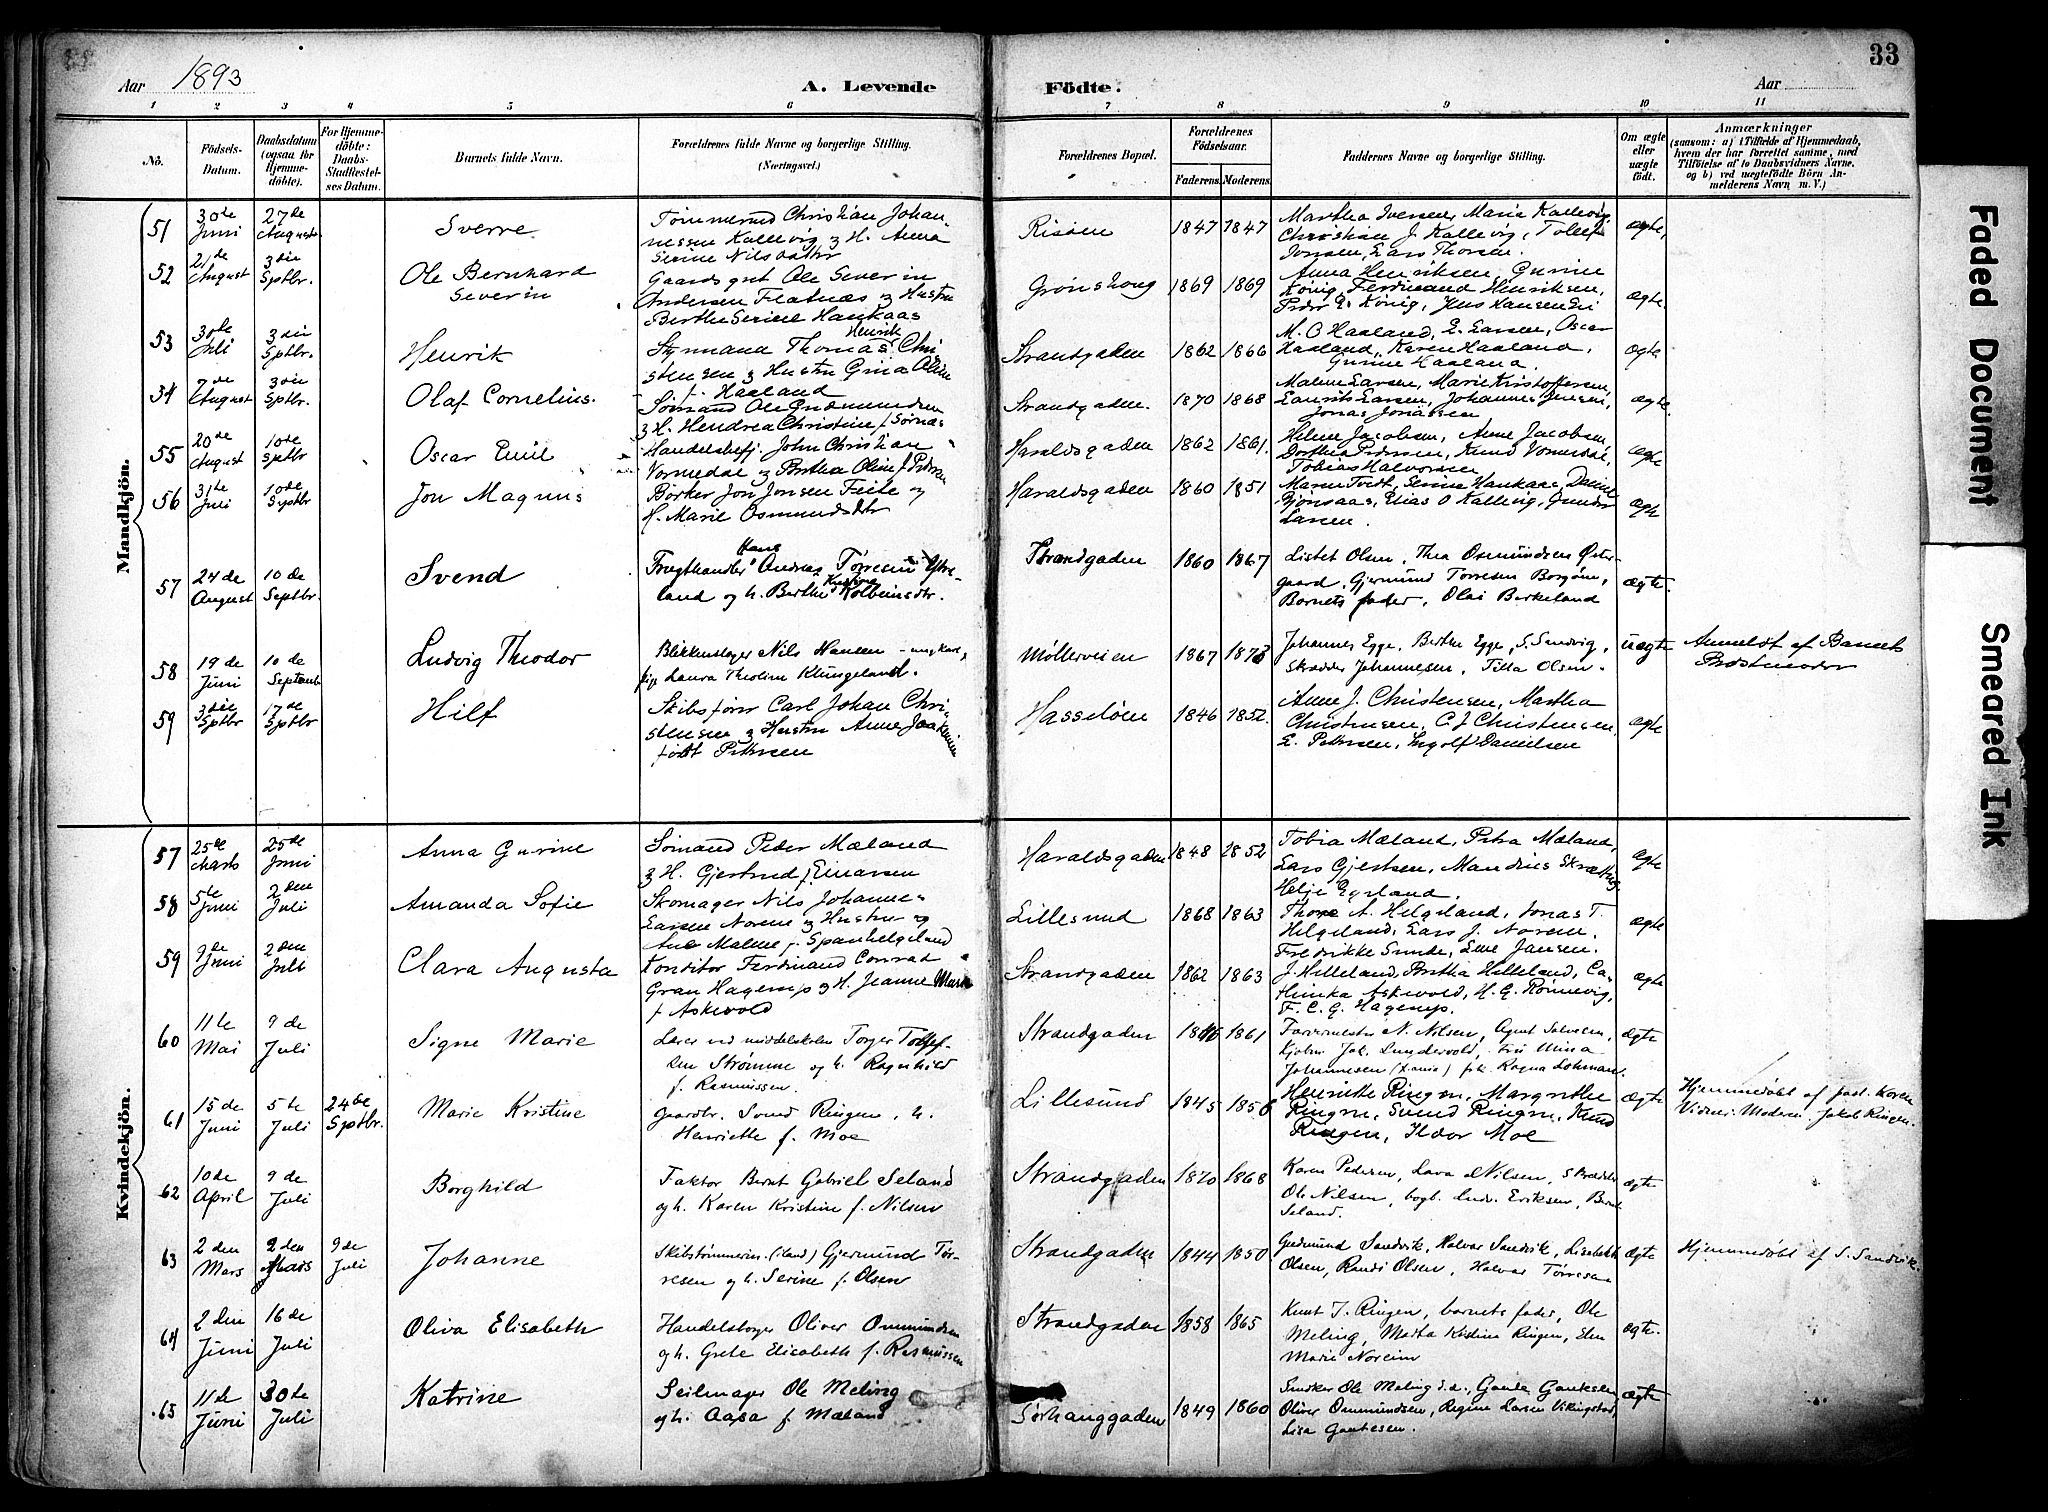 33
Aar 1893
A. Levende
Födte.
Aar
1 2 3 4 5 6 7 8 9 10 11
No.
Födsels-Datum.
Daabsdatum (ogsaa for Hjemme-döbte).
For Hjemme-döbte: Daabs-Stadfæstel-ses Datum.
Barnets fulde Navn.
Forældrenes fulde Navne og borgerlige Stilling. (Næringsvei.)
Forældrenes Bopæl.
Forældrenes Födselsaar.
Faderens. Moderens.
Faddernes Navne og borgerlige Stilling.
Om ægte eller uægte födt.
Anmærkninger
(saasom: a) i Tilfælde af Hjemmedaab,
hvem der har forrettet samme, med
Tilföielse af to Daabsvidners Navne,
og b) ved uægtefödte Börn An-
melderens Navn m. V.)
Mandkjön.
51 30te Juni 27de August Sverre
Tømmermd Christian Johan-
nessen Kallevig & H. Anna
Serine Nilsdatter
Risøen 1847 1847
Martha Iversen, Marie Kallevig,
Christian J. Kallevig, Tollef
Jonsen, Lars Thorsen.
ægte,
52 21de August 3die Septbr. Ole Bernhard Severin
Gaardsgut Ole Severin
Andersen Flatnæs & Hustru
Berthe Serine Haukaas
Grønshoug 1869 1869
Anna Henriksen, Gurine
König, Ferdinand Henriksen,
Peder E. König, Jens Hansen
ægte
53 30te Juli 3die Septbr. Henrik
Sømand Thomas Henrik Chri-
stensen & Hustru Gina Oline
f. Haaland
Strandgaden 1862 1866
M. O Haaland, E. Larsen, Oscar
Haaland, Karen Haaland,
Gurine Haaland.
ægte
34 7de August 3die Septbr. Olaf Cornelius.
Sømand Ole Gudmundsen
& H. Hendrea Christine f. Sørnæs
Strandgaden. 1870 1868
Malene Larsen, Marie Kristoffersen,
Laurits Larsen, Johannes Jensen,
Jonas Jonassen
ægte.
55 20de August 10de Septbr Oscar Emil
Handelsbetj. John Christian
Vormedal & Bertha Oline f. Petersen
Haraldsgaden 1862 1861.
Helene Jacobsen, Anne Jacobsen,
Dorthea Pedersen, Knud Vormedal,
Tobias Halvorsen
ægte
56 31te Juli 10de Septbr Jon Magnus
Bødker Jon Jonsen Feite og
H. Marie Osmundsdtr
Haraldsgaden 1860 1851
Maren Tvedt, Serine Haukaas, Daline
Bjønsaas, Elias O Kallevig, Gunder
Larsen.
ægte
57 24de August 10de Septbr. Svend
Frugthandler Hans Andreas Tørresen Ytre-
land og h. Berthe Kristine Kolbeinsdtr.
Strandgaden 1860 1867
Listet Olsen, Thea Osmundsen Øster-
gaard, Gjermund Torresen Borgøen,
Barnets fader, Olai Birkeland
ægte.
58 19de Juni 10de September Ludvig Theodor
Blikkenslager Nils Hansen – ungkarl,
pige Laura Theoline Klungeland.
Møllerveien 1867 1873
Johannes Egge, Berthe Egge, S. Sandvig,
Skrædder Johannesen, Tilla Olsen.
uægte
Anmeldt af Barnets
Bedstemoder
59 3die Septbr 17de Septbr Hilf
Skibsfører Carl Johan Chri-
stensen & Hustru Anne Joakime
født Pettersen
Hasseløen 1846 1852.
Anne J. Christensen, Martha
Christensen, C. J Christensen
E. Pettersen, Ingolf Danielsen
ægte
Kvindekjön.
57 25de Marts 25de Juni Anna Gurine
Sømand Peder Mæland
& H. Gjertrud f. Einarsen
Haraldsgaden 1848 1852
Tobia Mæland, Petra Mæland,
Lars Gjertsen, Mandius
Helje Egeland.
ægte
58 5te Juni 2den Juli Amanda Sofie
Skomager Nils Johannes
Larsen Noren & Hustru og
Ane Malene f. Spanhelgeland
Lillesund 1868 1863
Thore A. Helgeland, Jonas T.
Helgeland, Lars J. Noren,
Fredrikke Sunde, Jansen.
ægte
59 7de Juni 2den Juli Clara Augusta
Konditor Ferdinand Conrad
Gran Hagerup & H. Jeanne Marie
f. Askevold
Strandgaden 1862 1863
J. Helleland, Bertha Helleland, Ca-
thinka Askevold, H. G. Rønnevig,
F. C. G. Hagerup.
ægte
60 11te Mai 9de Juli Signe Marie
Lærer ved middelskolen Torger Tollef-
sen Strømme og h. Ragnhild
f. Rasmussen.
Strandgaden 1861
Farvermester N. Nilsen, Agent Salvesen,
Kjøbm. Jak. Lundevold, Frk Mina
Johannesen, frk. Ragna Lohman.
ægte
61 15de Juni 5te Juli 24de Septbr. Marie Kristine
gaardbr. Svend Ringen, h.
Henriette f. Moe
Lillesund 1845 1856
Henriette Ringen, Margrethe
Ringen, Svend Ringen, Knud
Ringen, Ildor Moe
ægte
Hjemmedøbt af Past. Koren
Vidner: Moderen. Jakob Ringen.
62 10de April 9de Juli Borghild
Faktor Bernt Gabriel Seland
og h. Karen Kristine f. Nilsen
Strandgaden 1870 1868
Karen Pedersen, Lava Nilsen, Skrædder
Ole Nilsen, bogb. Ludv. Eriksen, Bernt
Seland.
ægte
63 2den Mars 2den Mars 9de Juli Johanne
Skibstømmerm. (land) Gjermund Tør-
resen og h. Serine f. Olsen
Strandgaden 1844 1850
Gudmund Sandvik, Halvar Sandvik, Lisabeth
Olsen, Randi Olsen, Halvar Tørresen
ægte
Hjemmedøbt af S. Sandvik.
64 2den Juni 16de Juli Oliva Elisabeth
Handelsborger Oliver Ommundsen
og h. Grete Elisabeth f. Rasmussen
Strandgaden 1858 1865
Knut J. Ringen, barnets fader, Ole
Meling, Marta Kristine Ringen, Elen
Marie Noreim
ægte.
65 11te Juni 30te Juli Katrine
Seilmager Ole Meling
og h. Aasa f. Mæland
Sørhauggaden 1849 1860
Snedker Ole Meling s.d., Gaute Gautesen
Oliver Ommundsen, Regine Larsen Vikingstad,
Lisa Gautesen.
ægte
Faded Document
Smeared Ink